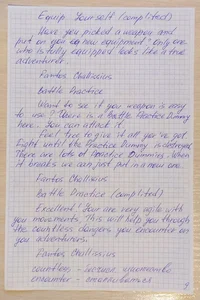 Equip Yourself (complited)
Have you picked a weapon and
put on you new equipment? Only one
who is fully equipped looks like a true
adventurer.
Fantos Chalissius
Battle Practice
Want to see if you weapon is easy
to use? There is a Battle Practice Dummy
here. You can attack it.
Feel free to give it all you've got.
Fight until the Practice Dummy is destroyed.
There are lots of Practice Dummies. When
it breaks we can just put in a new one.
Fantos Chalissius
Battle Practice (complited)
Excellent! You are very agile with
you movements. This will help you through
the countless dangers you encounter on
you adventures.
Fantos Chalissius
countless -
encounter -